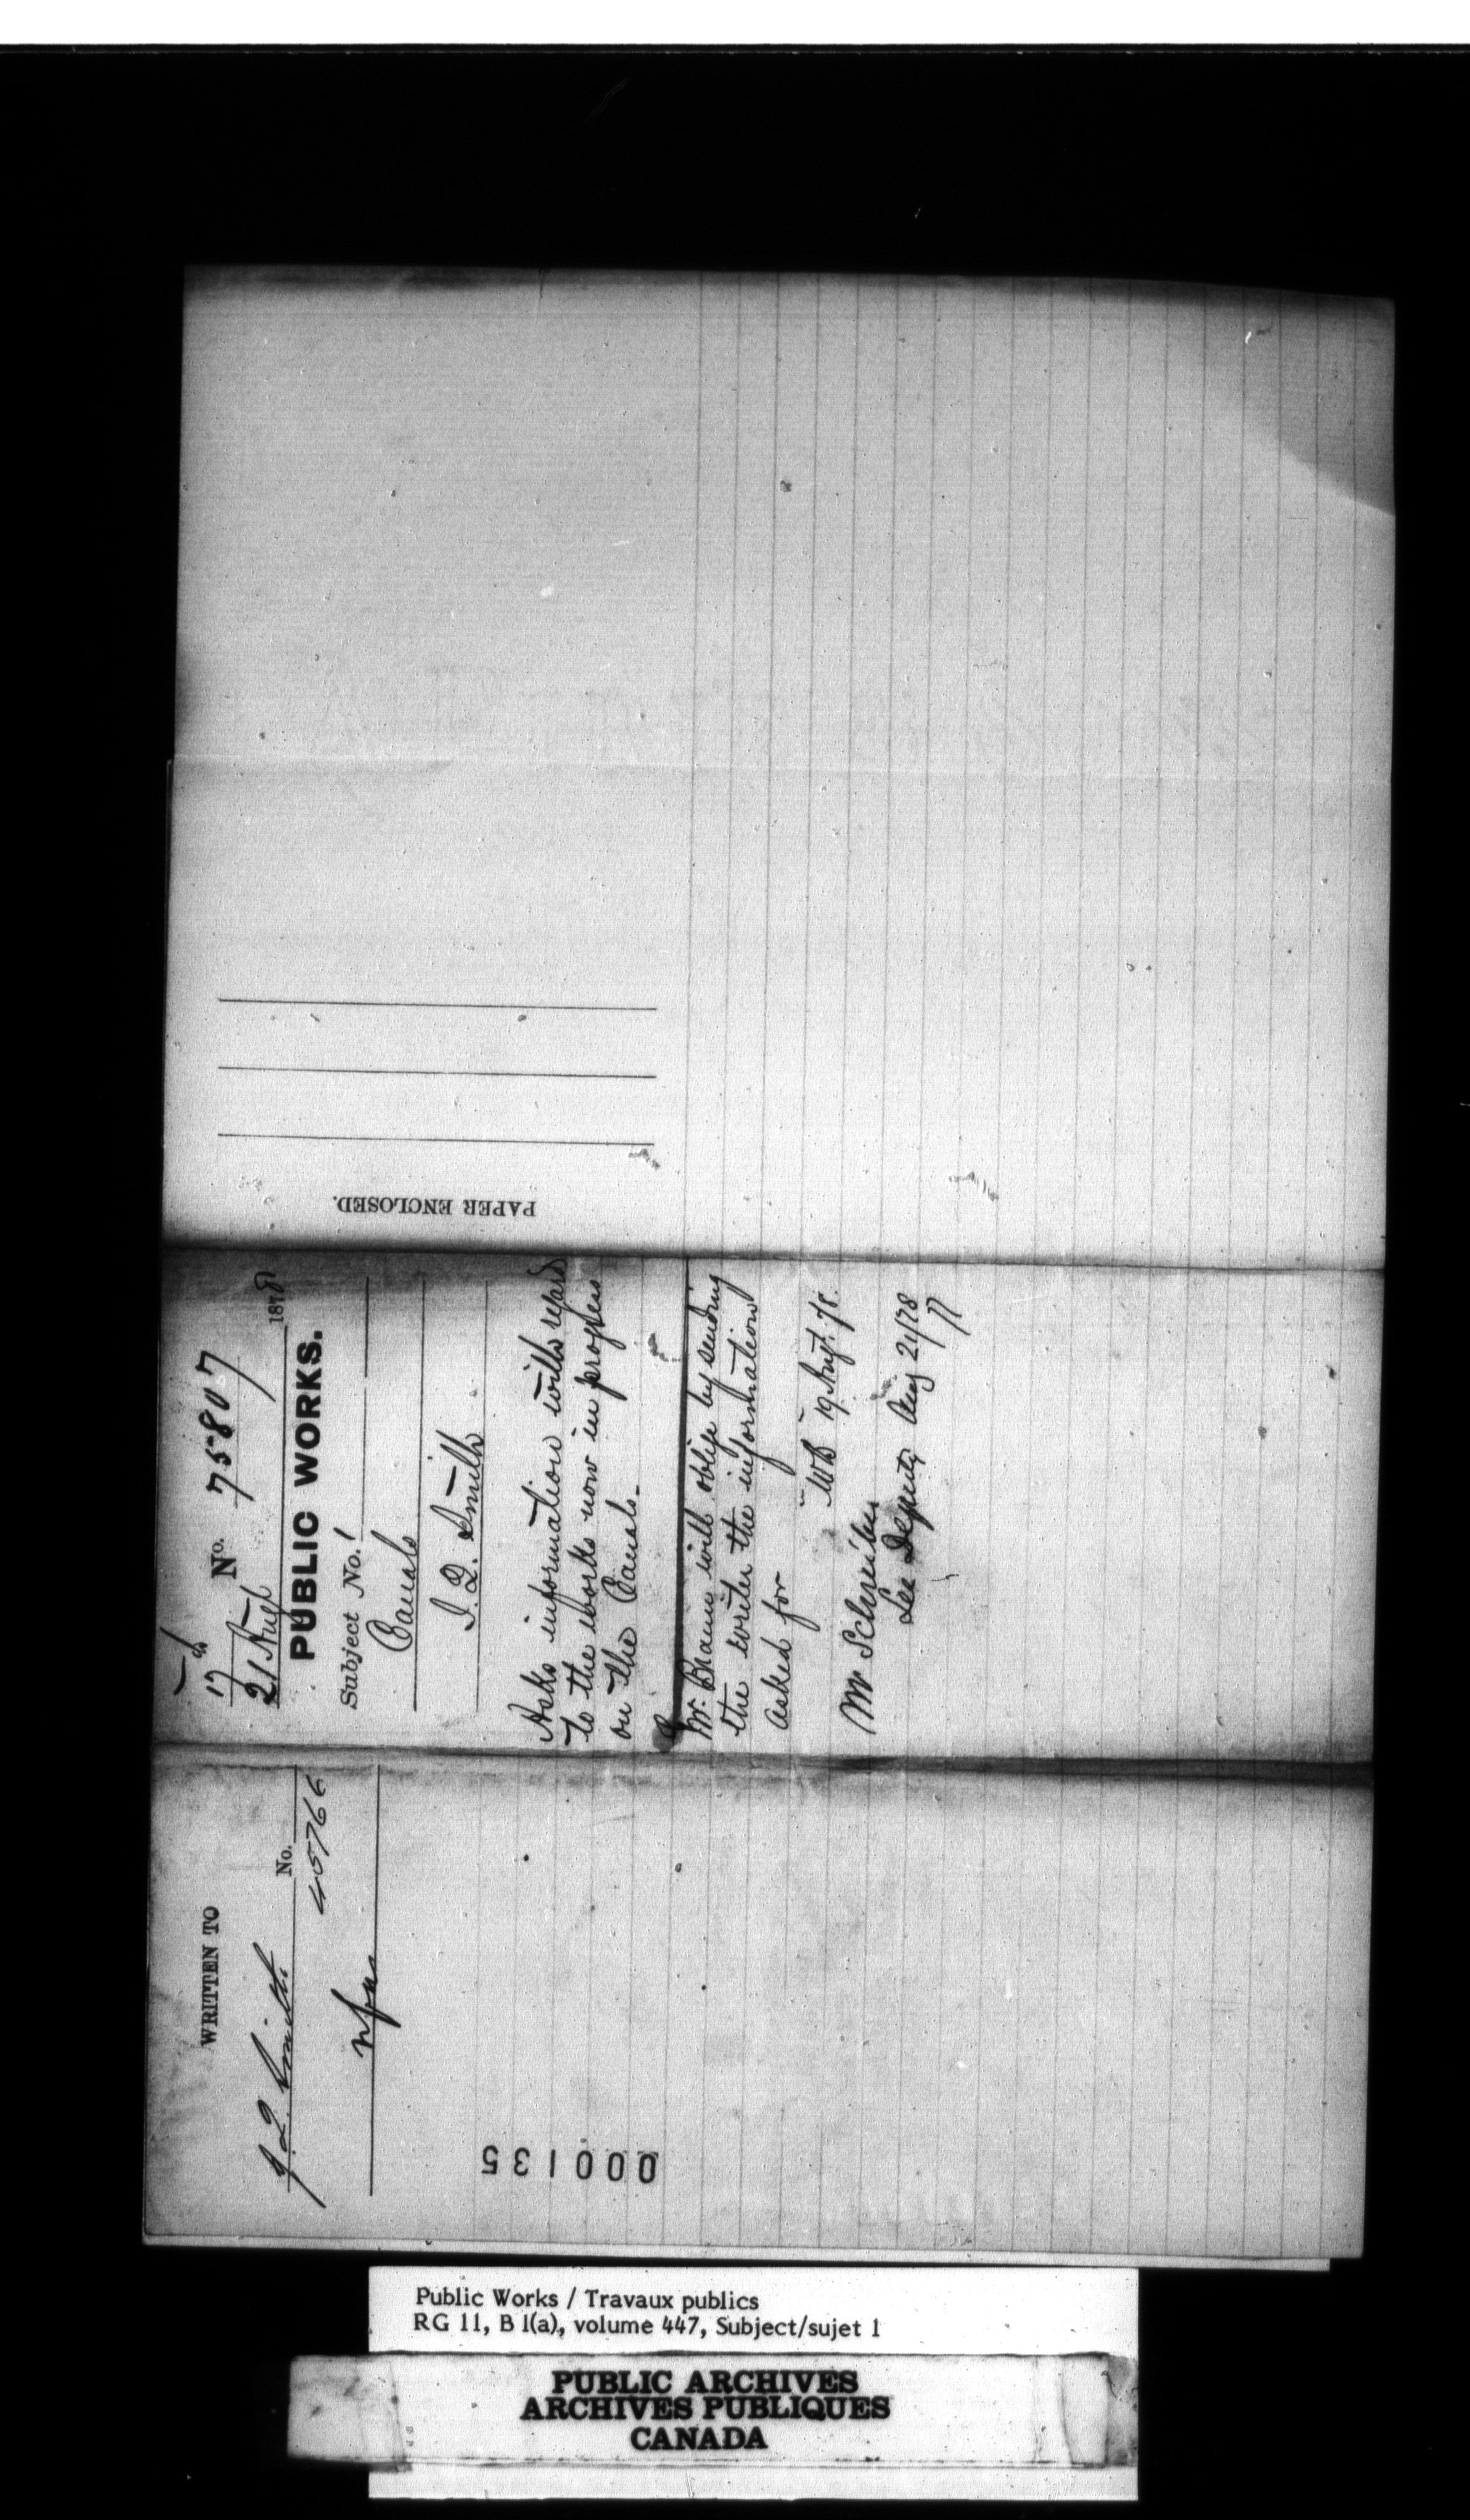 PAPER ENCLOSED.
17
No. 75807
21 Augt 1878
PUBLIC WORKS.
Subject No. 1
Canals
J. L. Smith
Asks information with regard
to the works now in progress
on the Canals.
Mr. Braun will oblige by sending
the writer the information
asked for
19 Augt. 78.
Mr Schreiber
See Deputy Aug 21/78
WRITTEN TO
J. L. Smith No.
45766
000135
Public Works / Travaux publics
RG 11, B 1(a), volume 447, Subject/sujet 1
PUBLIC ARCHIVES
ARCHIVES PUBLIQUES
CANADA